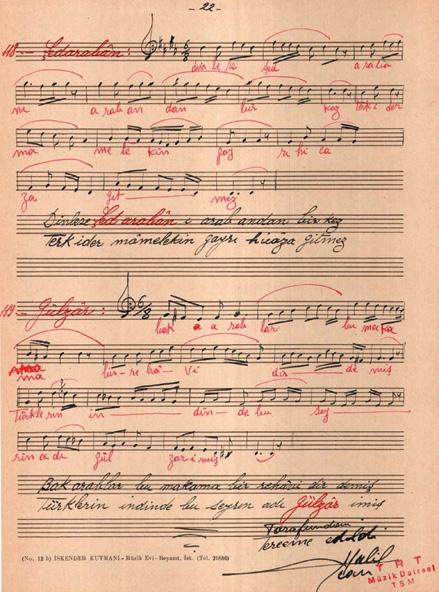 - 22 -
118 - Şedarabân :
din le se şed a raban
ni a rab an dan bir kez terk i der
ma me le kin gay rı hi ca
za git mez
Dinlese Şedarabân ı arab andanı bir kez
Terk ider mamelekin gayrı hicaza gitmez
119 - Gülzâr : 6/8
bak a a rab lar bu maka
ma bir re hâ vi dir de miş
Türkle rin in din de bu sey
rin a dı gül zar i miş
Bak arablar bu makama bir rehâvi dir demiş
Türklerin indinde bu seyrin adı Gülzâr imiş
Tarafımdan
tercüme edildi
Halil
Can
(No. 12 b) İSKENDER KUTMANİ - Müzik Evi - Beyazıt, İst. (Tel. 20886)
T R T
Müzik Dairesi
TSM